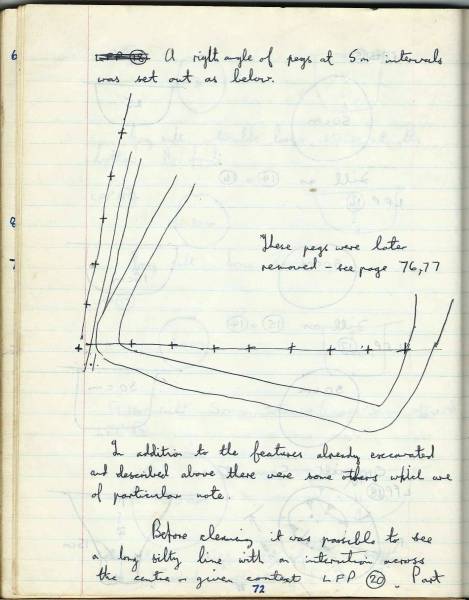 LFP (18) A right angle of pegs at 5m intervals
was set out as below.
These pegs were later
removed – see page 76,77
In addition to the features already excavated
and described above there were some others which are
of particular note.
Before cleaning it was possible to see
a long silty line with an interruption across
the centre or given context LFP (20). Part
72